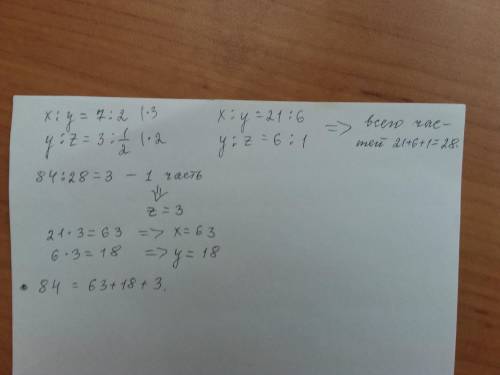 x:y = 7:2 | · 3
y:z = 3:1/2 | · 2
x:y = 21:6
y:z = 6:1
=> всего час-
тей 21+6+1=28.
84:28=3 – 1 часть
⇓
z = 3
21·3=63 => x=63
6·3=18 => y=18
84 = 63+18+3.